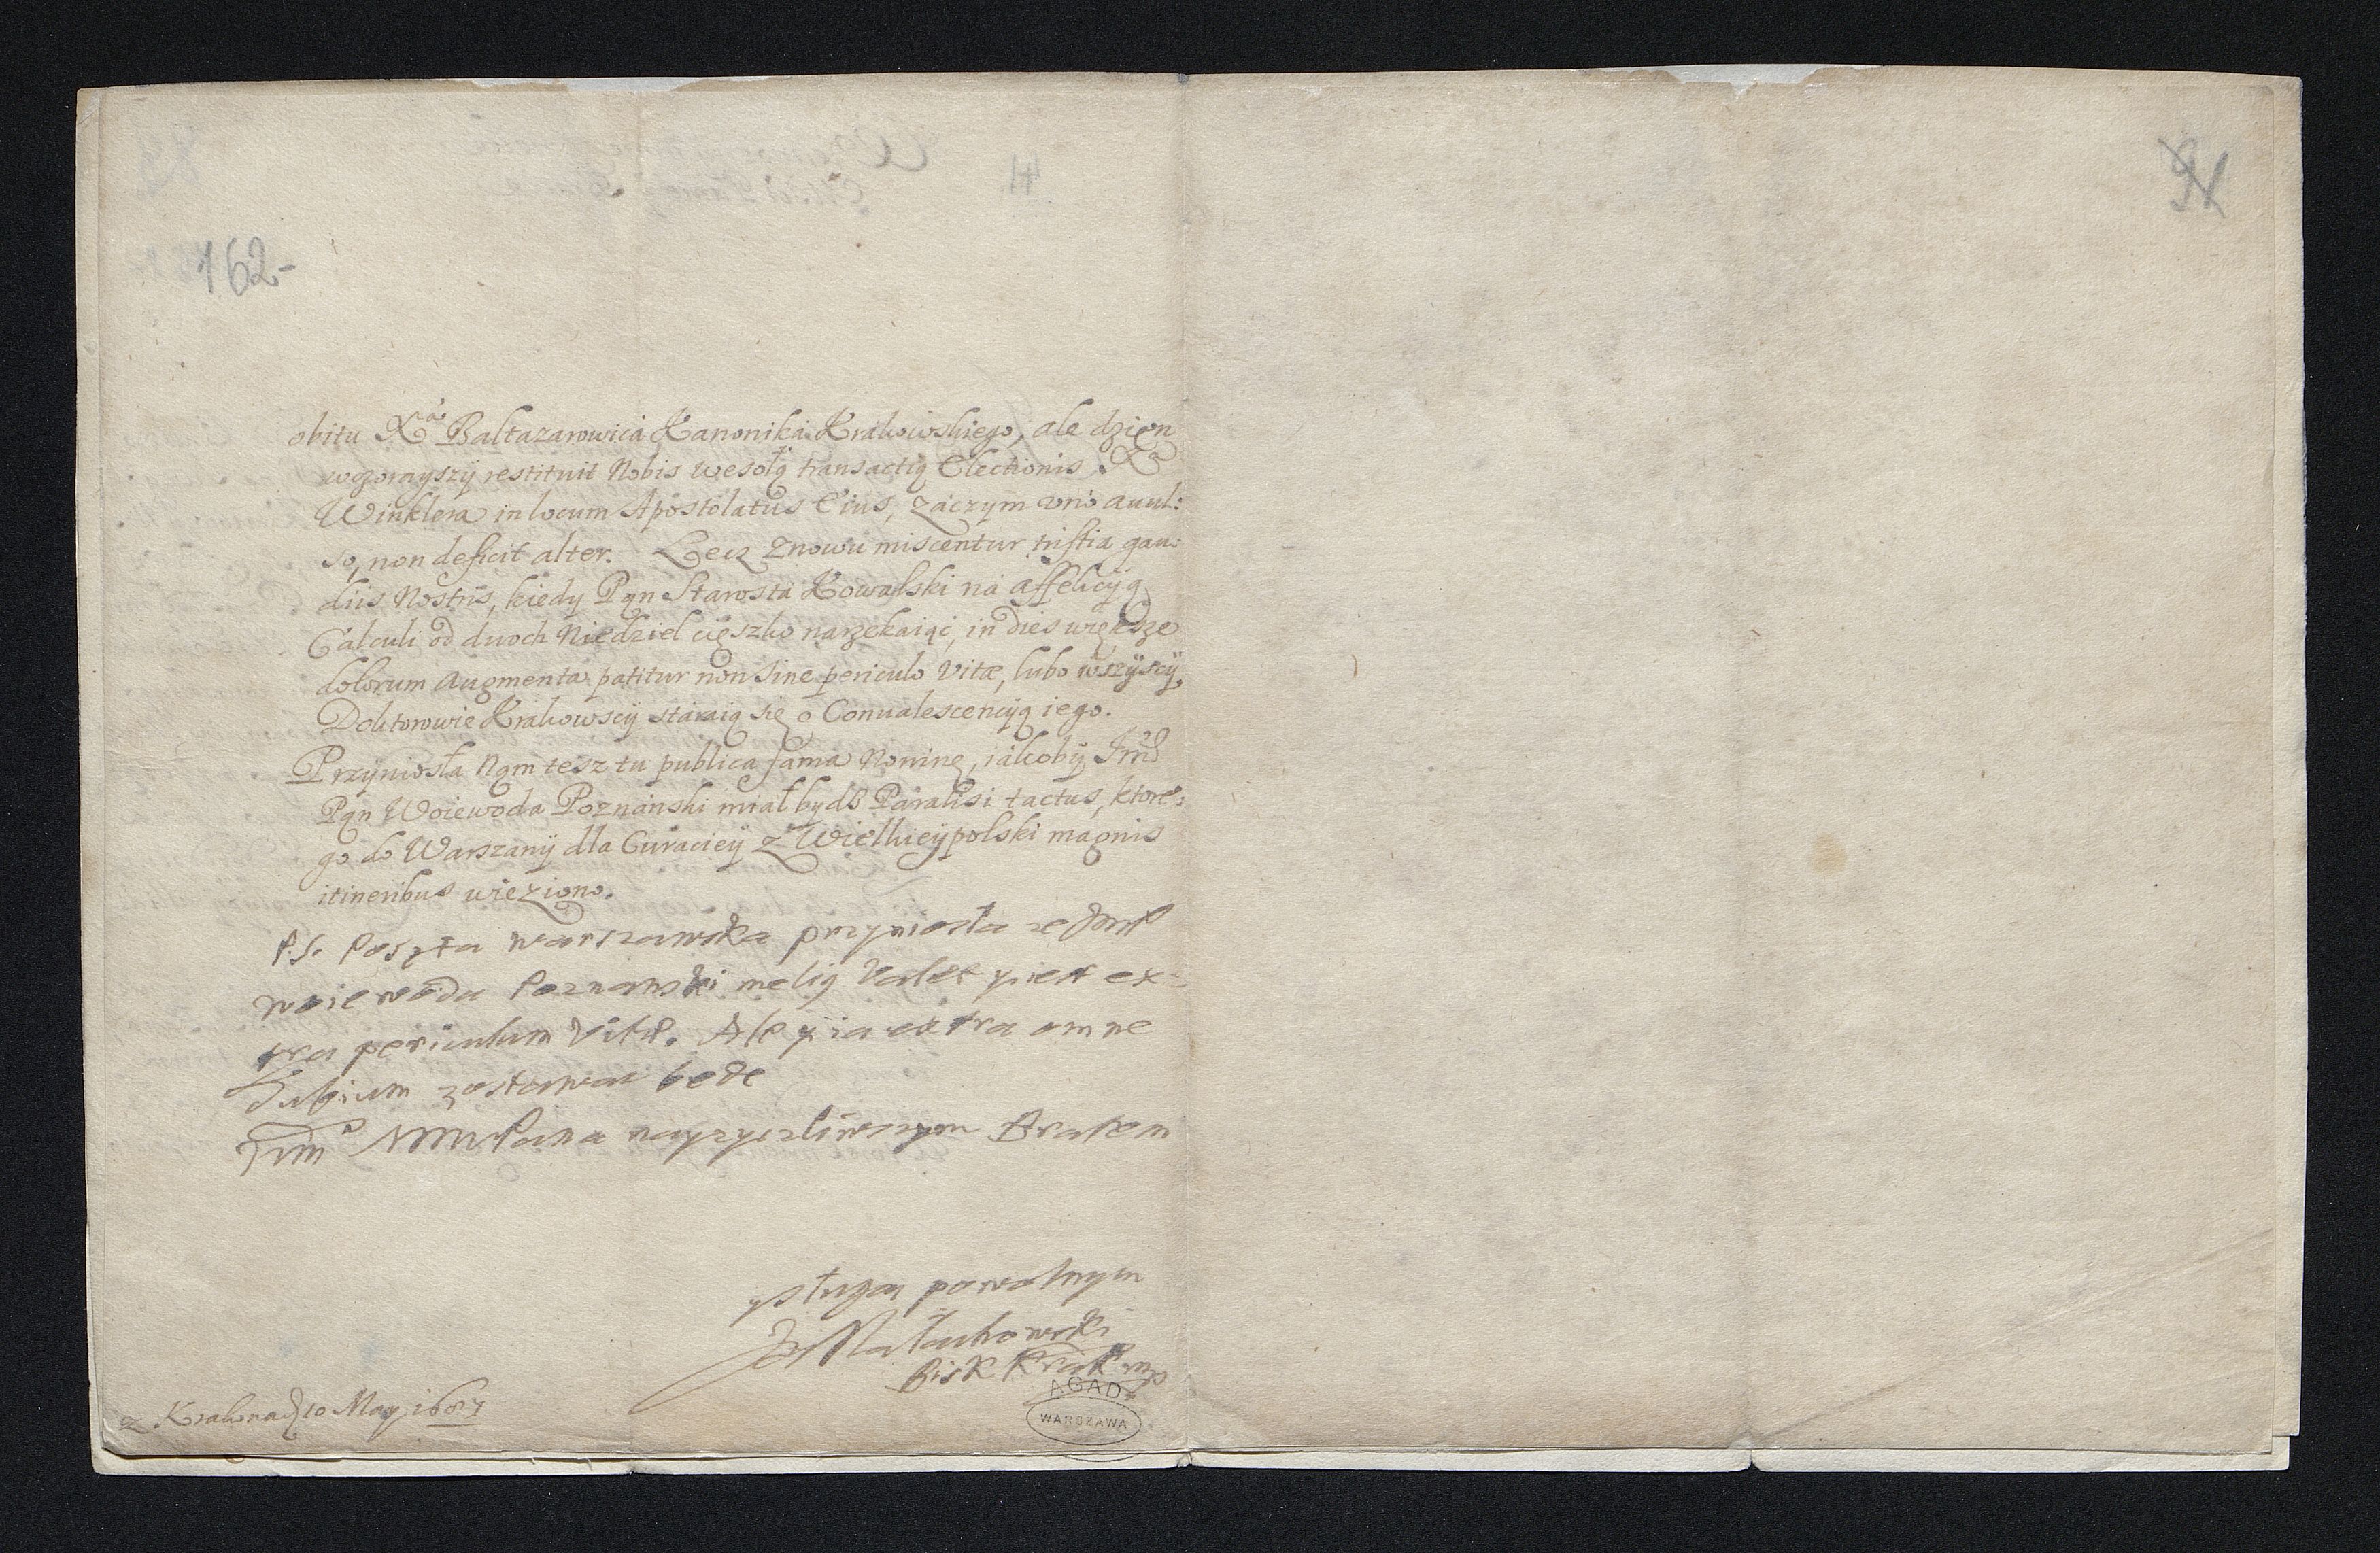 162-
91
obitu Xa Baltazarowica Kanonika Krakowskiego, ale dzięn
wczorayszÿ restituit Nobis wesołą transactią Electionis Xa
Winklera in locum Apostolatus Eius, zaczym uno auul:
so, non deficit alter. Lecz znowu miscentur tristia gau:
diis Nostris, kiedy Pąn Starosta Kowalski na affekcyją
Calculi od dwoch Niedziel cięszko narzekaiąć, in dies większe
dolorum augmenta patitur non sine periculo Vitæ, lubo wszÿscÿ
Doktorowie Krakowscÿ staraią się o Conualescencÿą iego.
Przÿniosła Nąm tesz tu publica fama Nowinę, iakobÿ Jmć
Pąn Woiewoda Poznanski miał bydź Paralisi tactus, ktore:
go do Warszawÿ dla Curaciey z Wielkieÿpolski magnis
itineribus wieziono.
P.S. Poszta warszawska przyniosła ze Jmć
woiewoda Poznanski melių valet y iest ex=
tra periculum vitæ. Ale y ia extra omne
dubium zostawac bede
Jmć MM Pana nayzyczliwszym Bratem
y sługą powolnym
J Małachowski
Bisk Krak mp
z Krakowa d 10 May 1687
AGAD
WARSZAWA